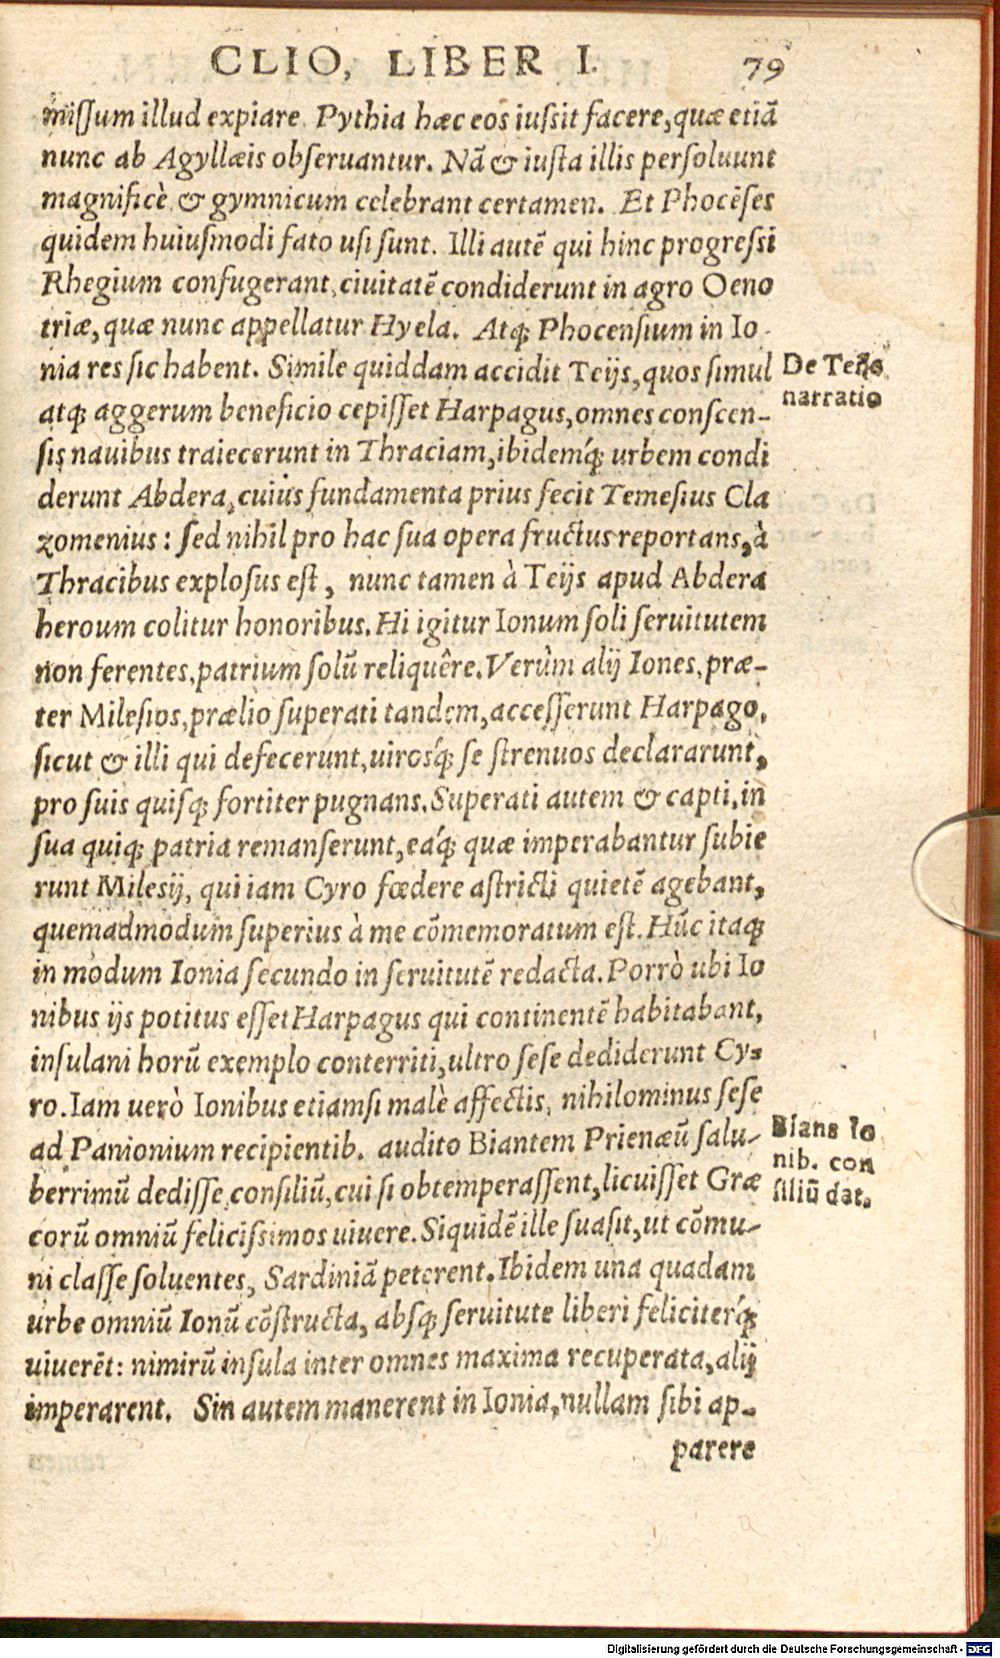 CLIO, LIBER I. 79
miſſum illud expiare. Pythia hæc eos iuſsit facere, quæ etiã
nunc ab Agyllæis obſeruantur. Nã & iuſta illis perſoluunt
magnificè & gymnicum celebrant certamen. Et Phocẽſes
quidem huiuſmodi fato uſi ſunt. Illi autẽ qui hinc progreſsi
Rhegium confugerant, ciuitatẽ condiderunt in agro Oeno
triæ, quæ nunc appellatur Hyela. Atq; Phocenſium in Io
nia res ſic habent. Simile quiddam accidit Teijs, quos ſimul
De Teijs
atq; aggerum beneficio cepiſſet Harpagus, omnes conſcen-
narratio
ſis nauibus traiecerunt in Thraciam, ibidemq́; urbem condi
derunt Abdera, cuius fundamenta prius fecit Temeſius Cla
zomenius: ſed nihil pro hac ſua opera fructus reportans, à
Thracibus exploſus eſt, nunc tamen à Teijs apud Abdera
heroum colitur honoribus. Hi igitur Ionum ſoli ſeruitutem
non ferentes, patrium ſolũ reliquêre. Verùm alij Iones, præ-
ter Mileſios, prælio ſuperati tandem, acceſſerunt Harpago,
ſicut & illi qui defecerunt, uirosq́; ſe ſtrenuos declararunt,
pro ſuis quiſq; fortiter pugnans. Superati autem & capti, in
ſua quiq; patria remanſerunt, eaq́; quæ imperabantur ſubie
runt Mileſij, qui iam Cyro fœdere aſtricti quietẽ agebant,
quemadmodum ſuperius à me cõmemoratum eſt. Hũc itaq;
in modum Ionia ſecundo in ſeruitutẽ redacta. Porrò ubi Io
nibus ijs potitus eſſet Harpagus qui continentẽ habitabant,
inſulani horũ exemplo conterriti, ultro ſeſe dediderunt Cy-
ro. Iam uerò Ionibus etiamſi malè affectis, nihilominus ſeſe
ad Panionium recipientib. audito Biantem Prienæũ ſalu-
Bians Io
nib. con
berrimũ dediſſe conſiliũ, cui ſi obtemperaſſent, licuiſſet Græ
ſiliũ dat.
corũ omniũ feliciſsimos uiuere. Siquidẽ ille ſuaſit, ut cõmu-
ni claſſe ſoluentes, Sardiniã peterent. Ibidem una quadam
urbe omniũ Ionũ cõſtructa, abſq; ſeruitute liberi feliciterq́;
uiuerẽt: nimirũ inſula inter omnes maxima recuperata, alij
imperarent. Sin autem manerent in Ionia, nullam ſibi ap-
parere
Digitalisierung gefördert durch die Deutsche Forschungsgemeinschaft - DFG